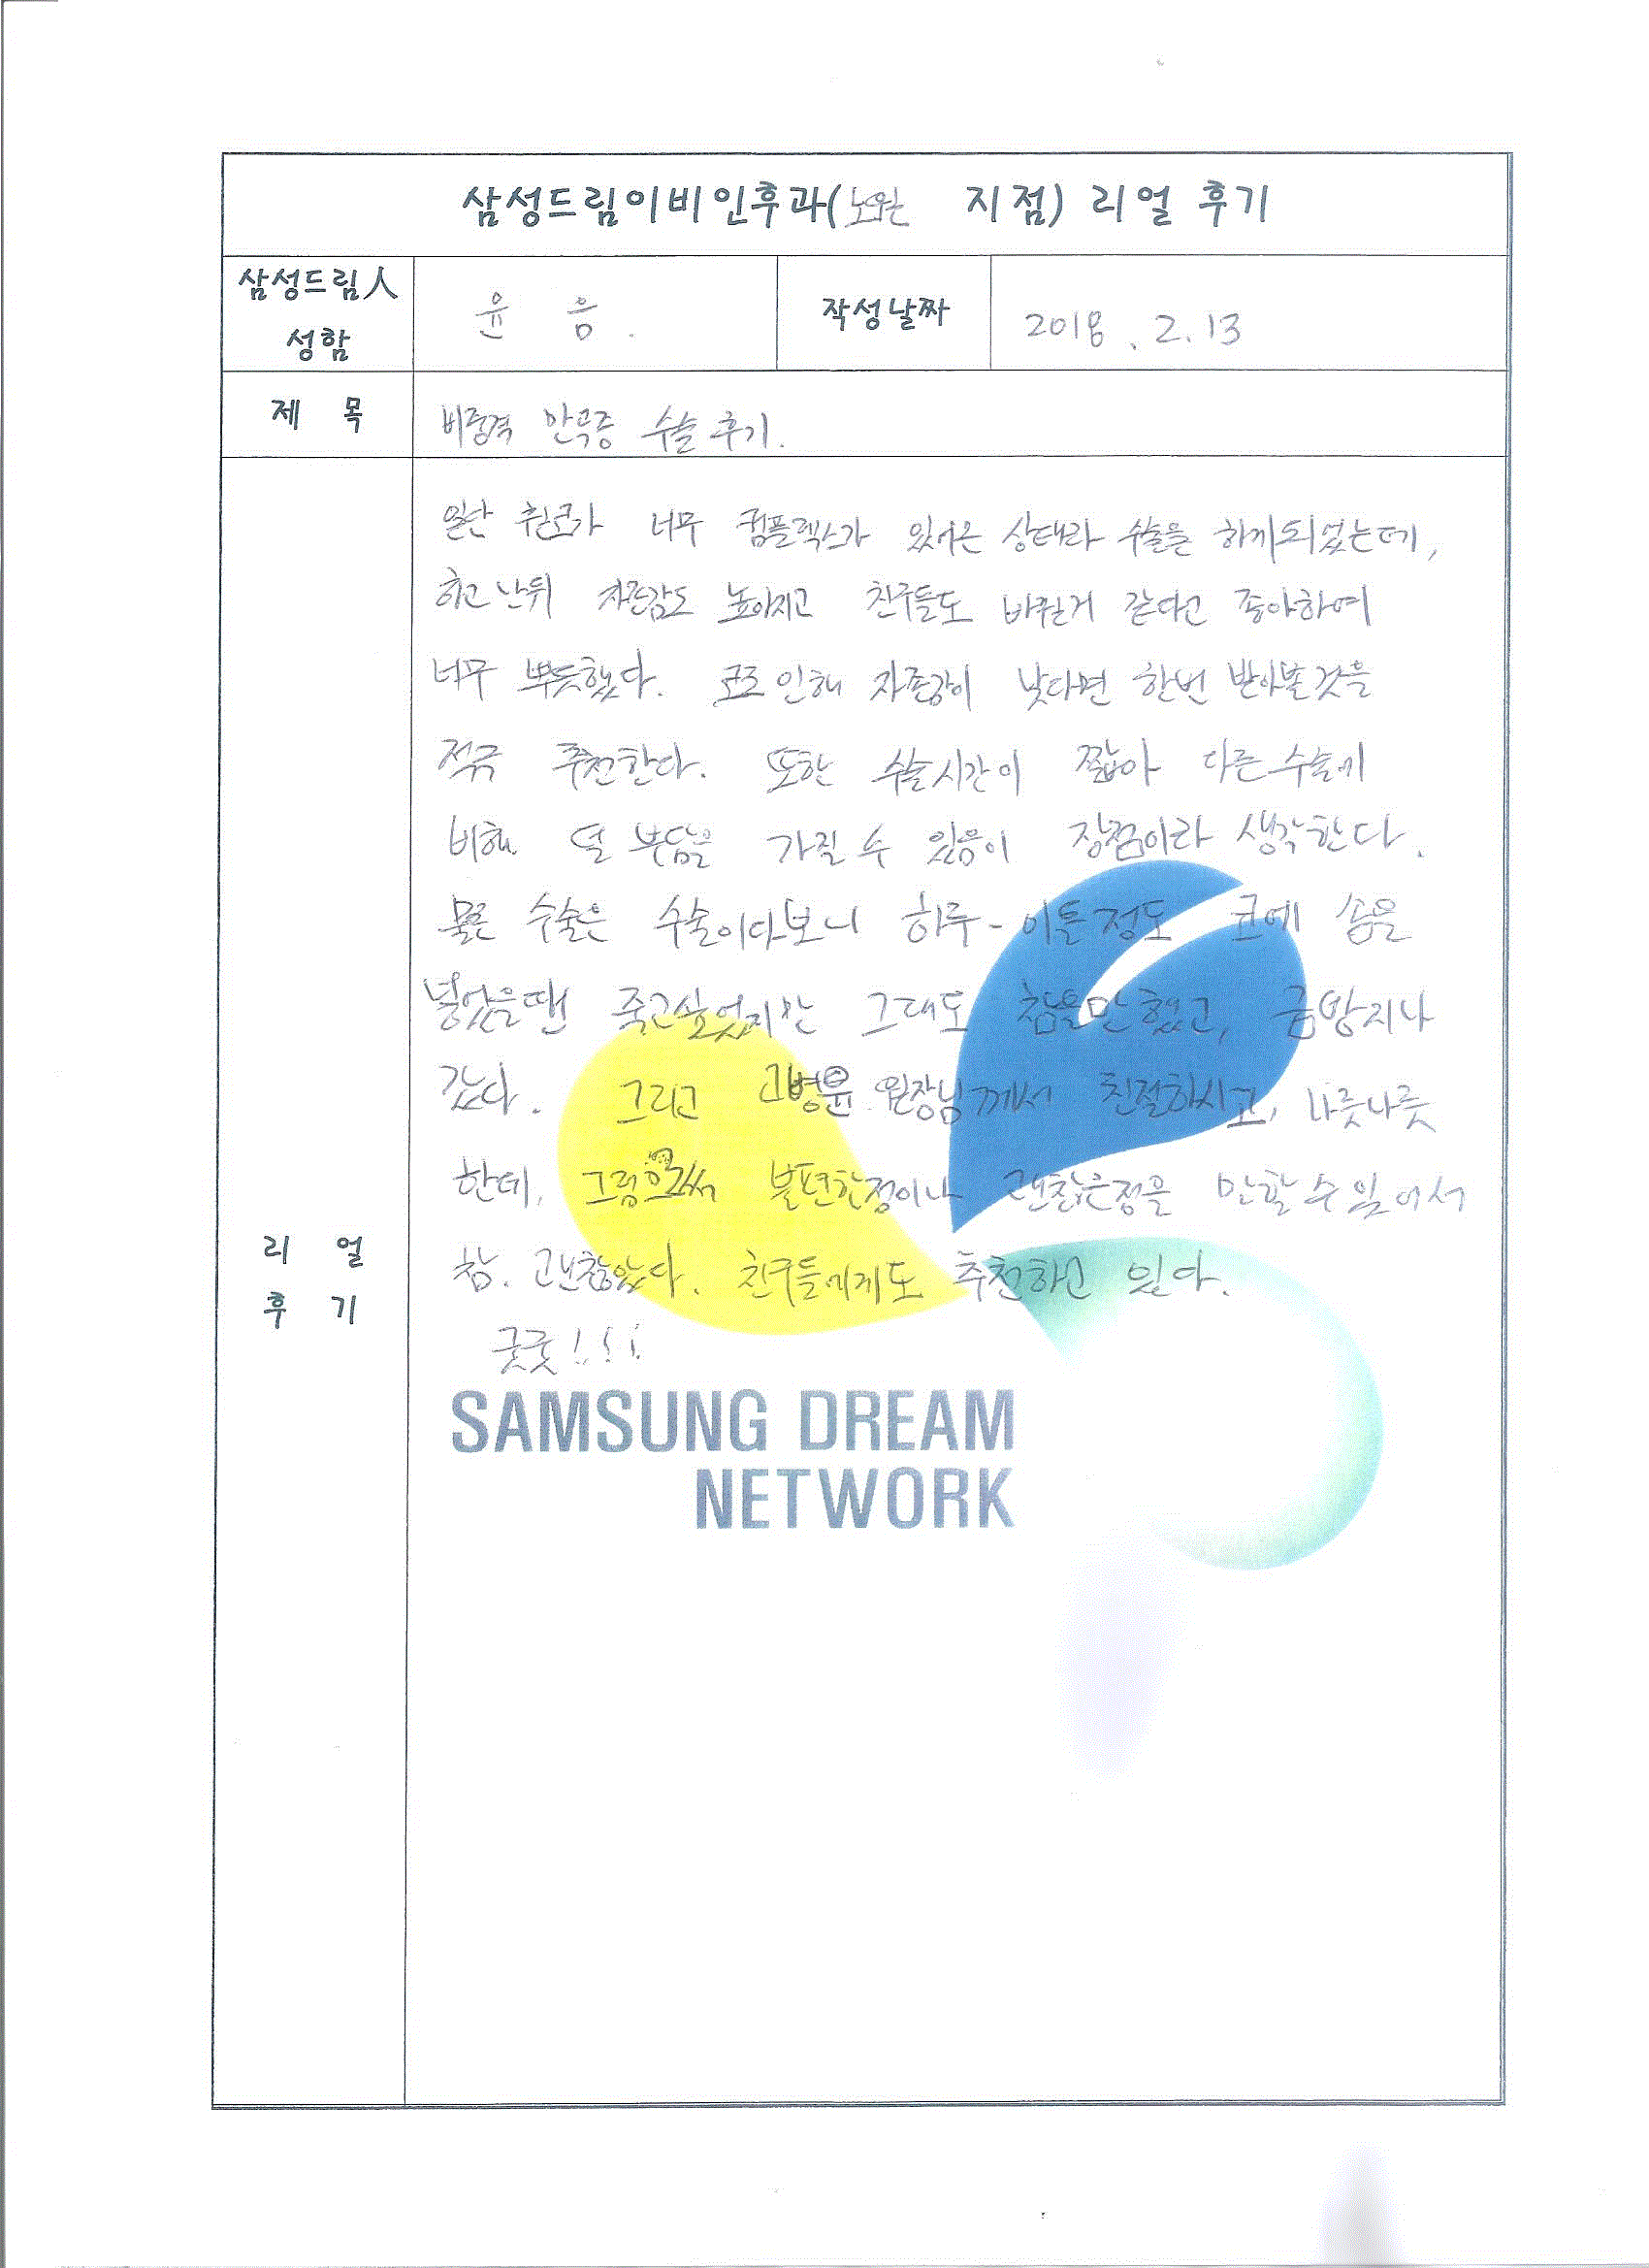 삼성드림이비인후과(노원 지점) 리얼 후기
삼성드림人
성함
윤 음.
작성날짜
2018. 2. 13
제 목
비중격 만곡증 수술 후기.
일단 휜코가 너무 컴플렉스가 있어온 상태라 수술을 하게되었는데,
하고 난뒤 자존감도 높아지고 친구들도 바뀐거 같다고 좋아하여
너무 뿌듯했다. 코로 인해 자존감이 낮다면 한번 받아볼것을
적극 추천한다. 또한 수술시간이 짧아 다른 수술에
비해 덜 부담을 가질 수 있음이 장점이라 생각한다.
물론 수술은 수술이다보니 하루-이틀정도 코에 솜을
넣었을땐 죽고싶었지만 그래도 참을만 했고, 금방지나
갔다. 그리고 고병윤 원장님께서 친절하시고, 나긋나긋
한데, 그럼으로써 불편한점이나 괜찮은점을 말할 수 있어서
참. 괜찮았다. 친구들에게도 추천하고 있다.
굿굿!!!
리 얼
후 기
SAMSUNG DREAM
NETWORK